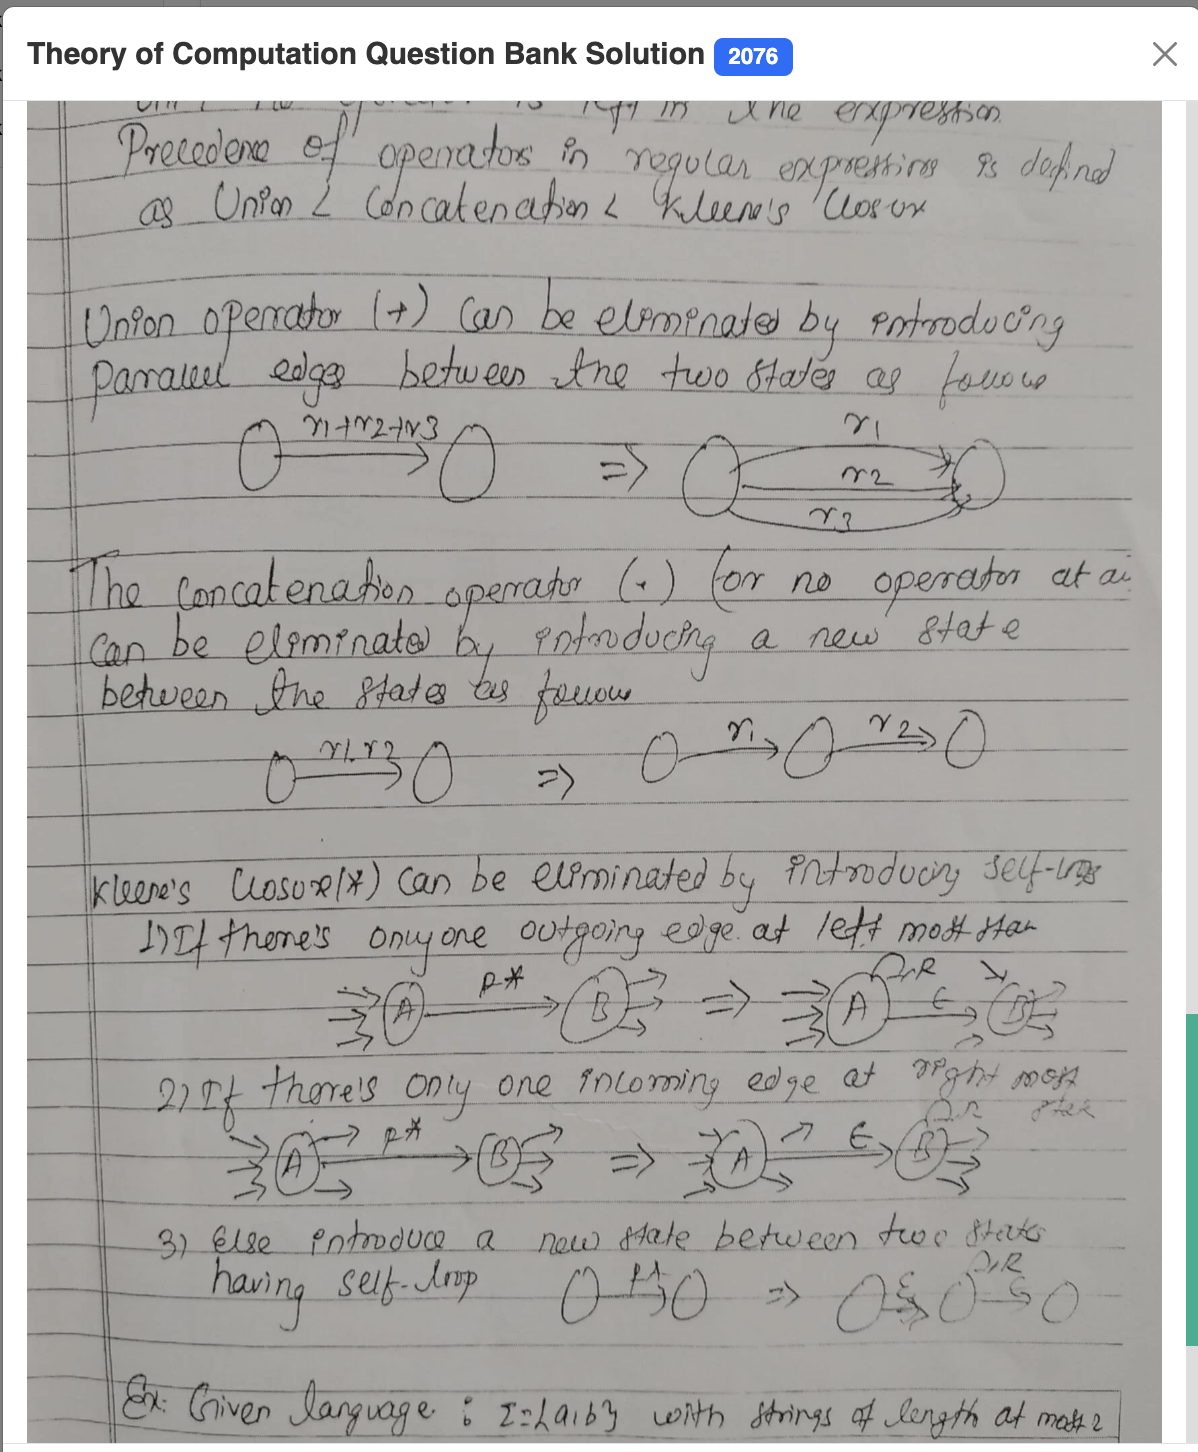 Theory of Computation Question Bank Solution 2076
is left in the expression
Precedence of operators in regular expressions is defined
as Union < Concatenation < Kleene's Closure
Union operator (+) can be eliminated by introducing
parallel edges between the two states as follows
r1+r2+r3
=>
r1
r2
r3
The Concatenation operator (.) (or no operator at
can be eliminated by introducing a new state
between the states as follows
r1.r2
=>
r1
r2
Kleene's Closure(*) can be eliminated by introducing self-loops
1) If there's only one outgoing edge at left most state
A
R*
B
=>
A
R
ε
B
2) If there's only one incoming edge at right most
state
A
R*
B
=>
A
ε
R
B
3) Else introduce a new state between two states
having self-loop
R*
=>
ε
R
ε
Ex: Given language : Σ={a,b} with strings of length at most 2